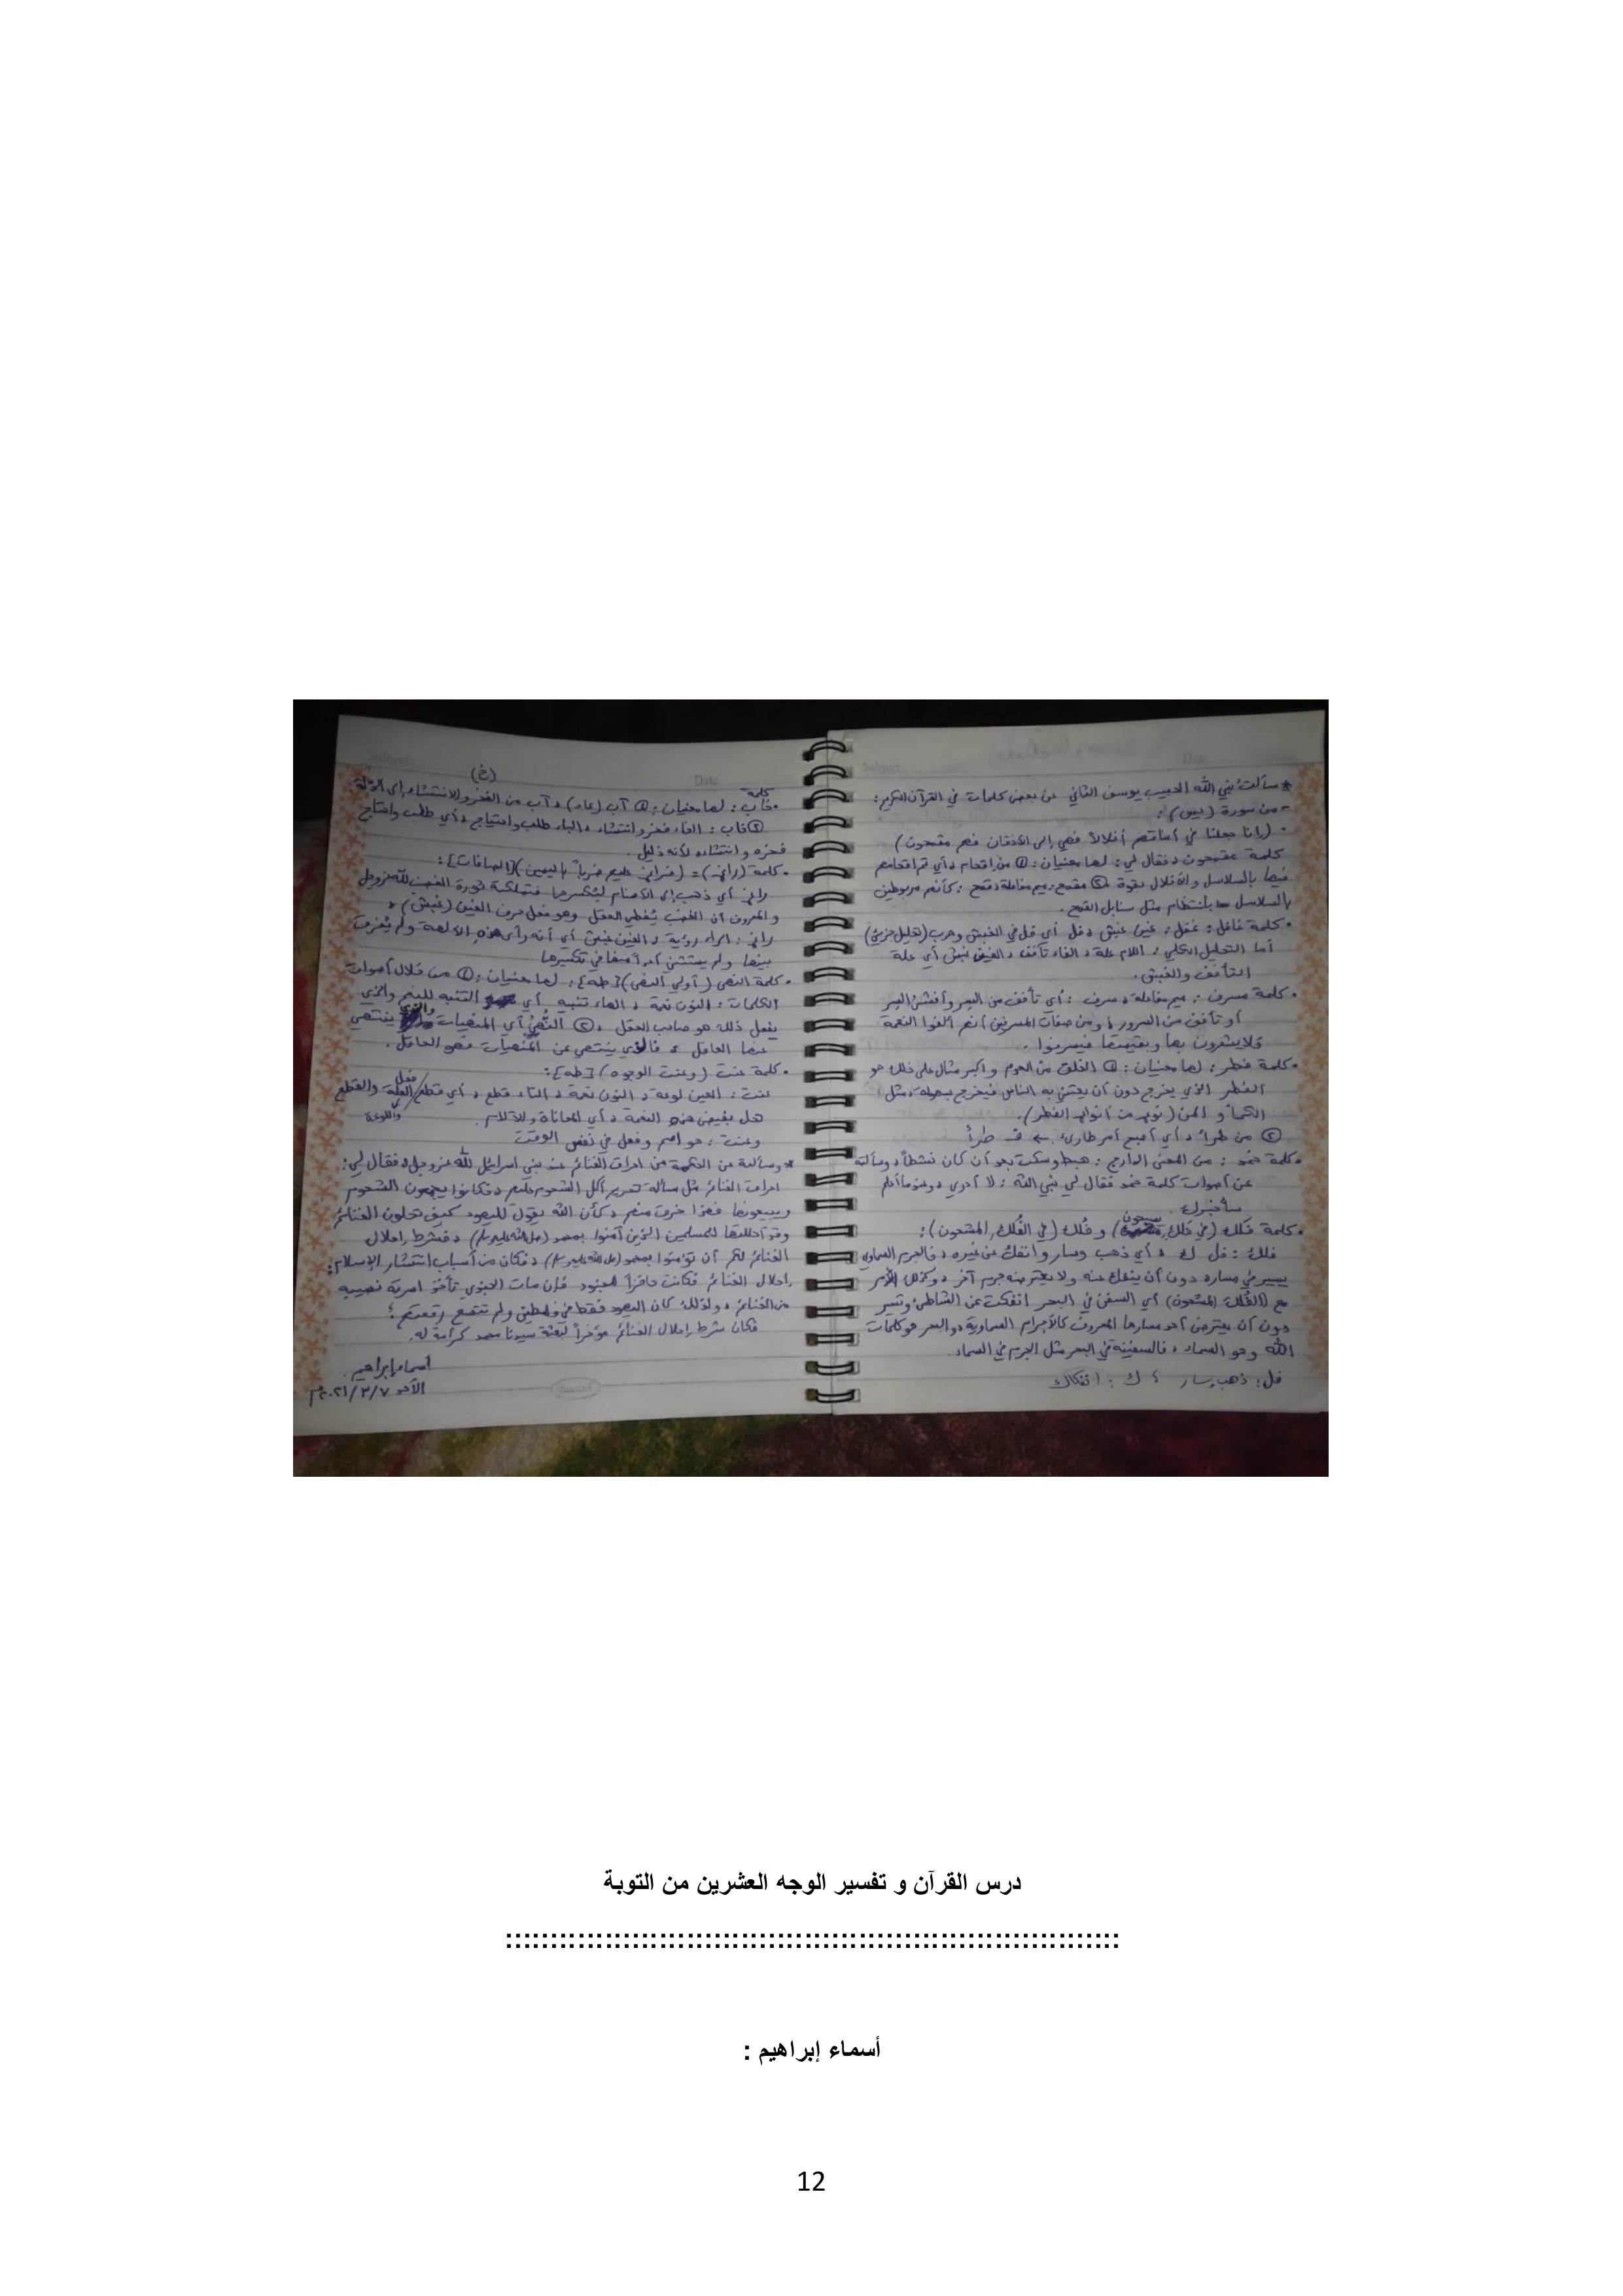 * سألتُ نبي الله الحبيب يوسف الثاني عن بعض كلمات في القرآن الكريم :
- من سورة (يس) :
• (إنا جعلنا في أعناقهم أغلالاً فهي إلى الأذقان فهم مقمحون)
كلمة مقمحون ، فقال لي : لها معنيان : ① من إقحام ، أي تم إقحامهم
فيها بالسلاسل والأغلال بقوة ② مقمح : ميم مفاعلة ، قمح : كأنهم مربوطين
بالسلاسل بانتظام مثل سنابل القمح .
• كلمة غافل : غفل : غين غبش ، فل أي فل في الغبش وهرب (تحليل جزئي)
أما التحليل الكلي : اللام علة ، الفاء تأفف ، الغين غبش أي علة
التأفف والغبش .
• كلمة مسرف : ميم مفاعلة ، سرف : أي تأفف من السر وأفشى السر
أو تأفف من السرور ، ومن صفات المسرفين أنهم ألفوا النعمة
فلا يشعرون بها وبقيمتها فيسرفوا .
• كلمة فطر : لها معنيان : ① الخلق من العدم وأكبر مثال على ذلك هو
الفطر الذي يخرج دون أن يعتني به الناس فيخرج بسهولة ، مثل
الكمأ و المن (نوع من أنواع الفطر) .
② من طرأ ، أي أصبح أمر طارئ . ← فـ طرأ
• كلمة خمد : من المعنى الدارج : هبط وسكت بعد أن كان نشطاً ، وسألته
عن أصوات كلمة خمد فقال لي نبي الله : لا أدري ، وعندما أعلم
سأخبرك .
• كلمة فلك (في فلك يسبحون) و فُلك (في الفُلك المشحون) :
فلك : فل ك ، أي ذهب وسار وانفك عن غيره ، فالجرم السماوي
يسير في مساره دون أن ينفك عنه ولا يعترضه جرم آخر ، وكذلك الأمر
مع (الفُلك المشحون) أي السفن في البحر انفكت عن الشاطئ وتسير
دون أن يعترض أحد مسارها المعروف كالأجرام السماوية ، والبحر هو كلمات
الله وهو السماء ، فالسفينة في البحر مثل الجرم في السماء .
فل : ذهب وسار ؛ ك : انفكاك
(خ)
• كلمة خاب : لها معنيان : ① آب (عاد) ، آب من الفخر والانتشاء إلى الذلة
② خاب : الخاء فخر وانتشاء ، الباء طلب واحتياج ، أي طلب واحتاج
فخره وانتشاءه لأنه ذليل .
• كلمة (راغ) = (فراغ عليهم ضرباً باليمين) [الصافات] :
راغ أي ذهب إلى الأصنام ليكسرها فتملكته ثورة الغضب لله عز وجل
و المعروف أن الغضب يُغطي العقل وهو فعل حرف الغين (غبش) ،
راغ : الراء رؤية ، الغين غبش أي أنه رأى هذه الآلهة ولم يُفرق
بينها ولم يستثني أحد أصنامها في تكسيرها
• كلمة النهى (أولي النهى) [طه] : لها معنيان : ① من خلال أصوات
الكلمات : النون نعمة ، الهاء تنبيه أي التنبه للنعم والذي
يفعل ذلك هو صاحب العقل ، ② النُّهى أي المنهيات والذي ينتهي
عنها العاقل ، فالذي ينتهي عن المنهيات فهو العاقل .
• كلمة عنت (وعنت الوجوه) [طه] :
عنت : العين لوعة ، النون نعمة ، التاء قطع ، أي قطع فعل العلة والقطع
واللوعة
هل بغيض هذه النعمة ، أي المعاناة والآلام .
وعنت : هو اسم وفعل في نفس الوقت
* وسألته عن الحكمة من احراق الغنائم عند بني اسرائيل لله عز وجل ، فقال لي :
احراق الغنائم مثل مسألة تحريم أكل الشحوم عليهم ، فكانوا يجمعون الشحوم
ويبيعونها فهذا خرق منهم ، كأن الله يقول لليهود كيف تحلون الغنائم
وقد أحللتها للمسلمين الذين آمنوا بمحمد (صلى الله عليه وسلم) ، فشرط احلال
الغنائم لكم أن تؤمنوا بمحمد (صلى الله عليه وسلم) ، فكان من أسباب انتشار الإسلام :
احلال الغنائم فكانت حافزاً للجنود فإن مات الجندي تأخذ امرأته نصيبه
من الغنائم ، ولذلك كان اليهود فقط في فلسطين ولم تتسع رقعتهم ؛
فكان شرط احلال الغنائم مؤخراً لبعثة سيدنا محمد كرامة له .
أسماء إبراهيم
الأحد ٢٠٢١/٣/٧م
درس القرآن و تفسير الوجه العشرين من التوبة
::::::::::::::::::::::::::::::::::::::::::::::::::::::::::::::::::::
أسماء إبراهيم :
12